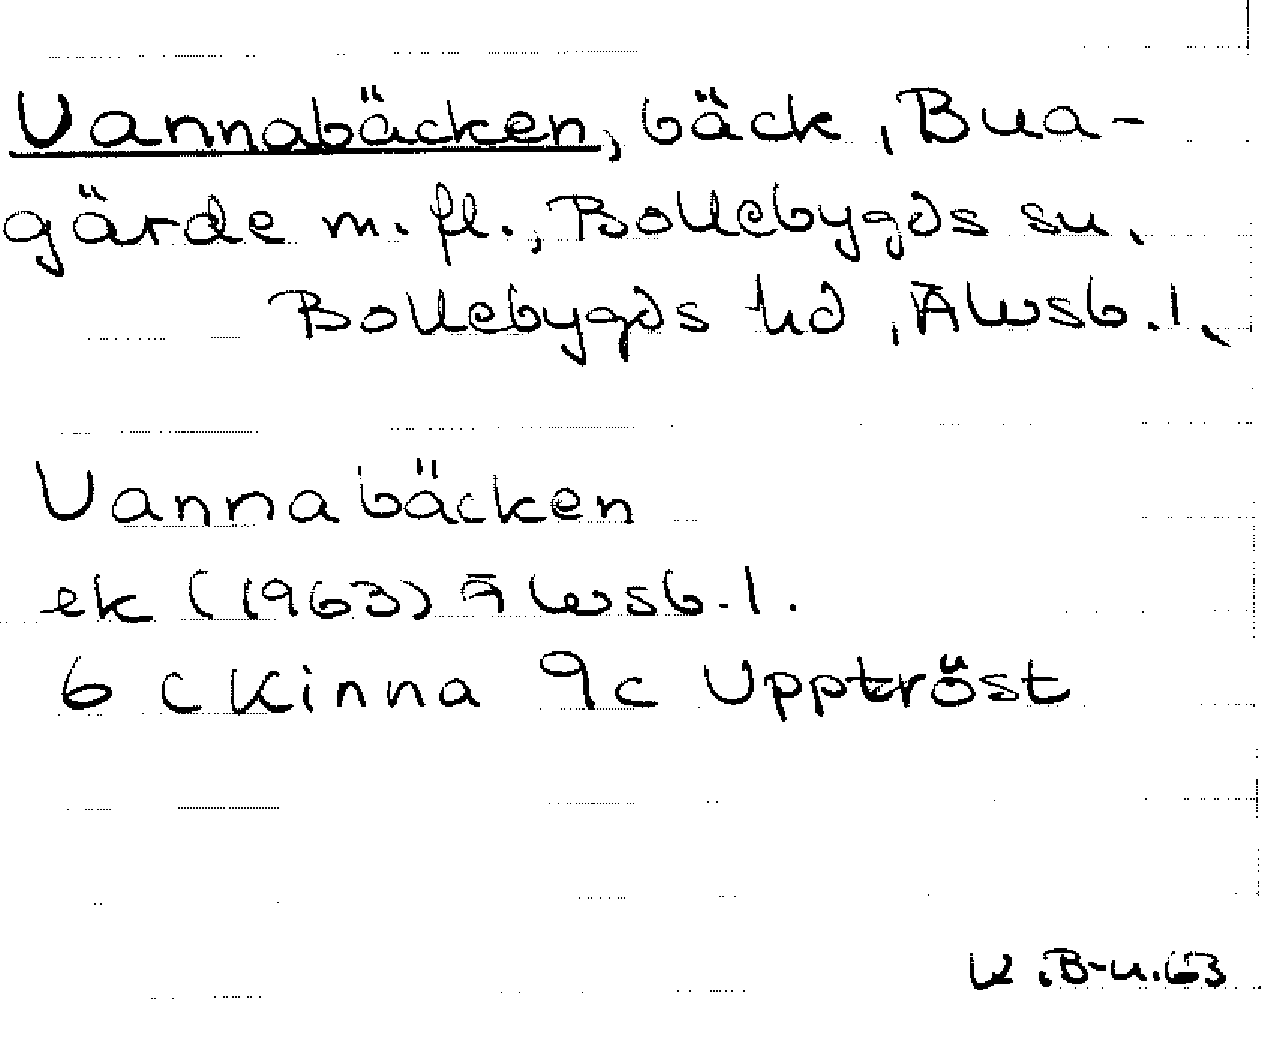 Vannabäcken, bäck, Bua-
gärde m. fl., Bollebygds sn,
Bollebygds hd, Älvsb. l.
Vannabäcken
ek (1963) Älvsb. l.
6 c Kinna 9c Upptröst
K.B-n.63